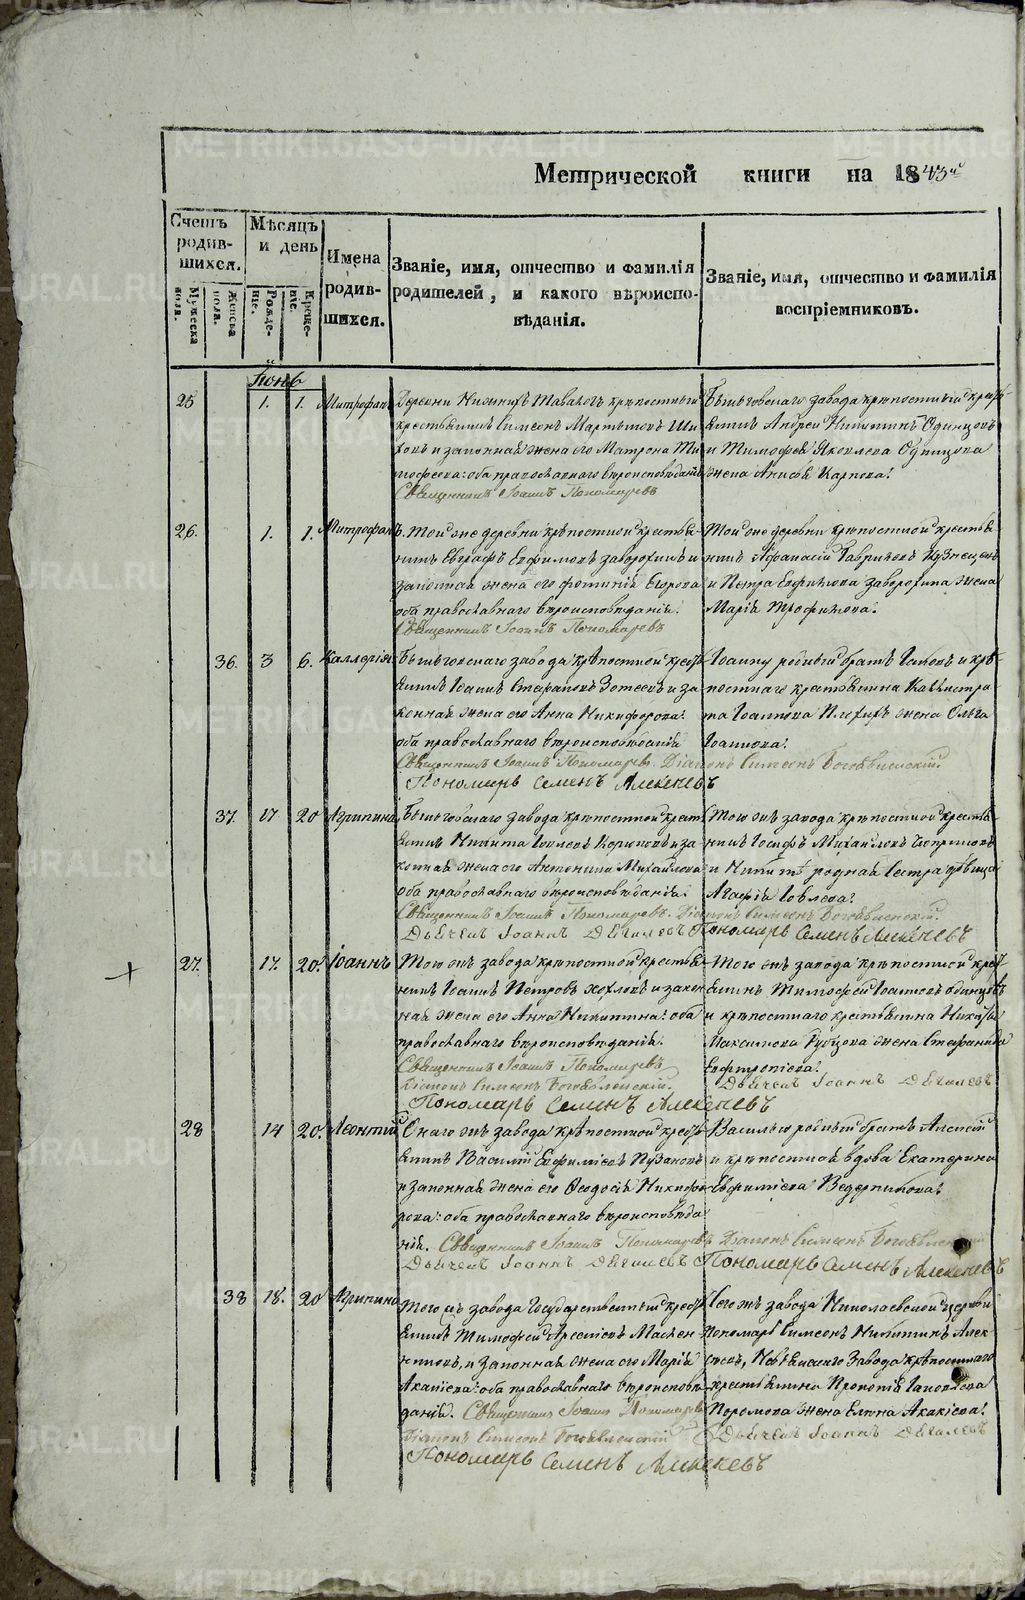 Метрической книги на 1843й
Счетъ родившихся.
Мужеска пола.
Женска пола.
Мѣсяцъ и день
Рождение.
Крещение.
Имена родившихся.
Званіе, имя, отчество и фамилія родителей, и какого вѣроисповѣданія.
Званіе, имя, отчество и фамилія воспріемниковъ.
Іюнь
25 1. 1. Митрофанъ
Деревни Нижнихъ Таваловъ крѣпостный
крестьянинъ Симеонъ Мартыновъ
и законная жена его Матрона Ти
мофеева: оба православнаго вѣроисповѣданія
Священникъ Іоаннъ Пономаревъ
завода крѣпостный кресть
янинъ Андрей Никитинъ Одинцовъ
и Тимофея Яковлева Одинцова
жена Анисія Карпова.
26. 1. 1. Митрофанъ.
Той же деревни крѣпостной крестья
нинъ Евграфъ Евфимовъ Заворохинъ и
законная жена его Фотинія Егорова
оба православнаго вѣроисповѣданія.
Священникъ Іоаннъ Пономаревъ
Той же деревни крѣпостной крестья
нинъ Афанасій Гавриловъ Кузнецовъ
и Петра Евфимова Заворохина жена
Марія Трофимова.
36. 3 6. Каллерія
завода крѣпостной кресть
янинъ Іоаннъ Стефановъ Зотеевъ и за
конная жена его Анна Никифорова.
оба православнаго вѣроисповѣданія
Священникъ Іоаннъ Пономаревъ Діаконъ Симеонъ Богоявленскій.
Пономарь Семенъ Алексеевъ
Іоанну родный братъ и крѣ
постнаго крестьянина Каллистра
та Іоаннова жена Ольга
Іоаннова.
37. 17 20 Агрипина
завода крѣпостной кресть
янинъ Никита Іовлевъ и за
конная жена его Антонина Михайлова
оба православнаго вѣроисповѣданія.
Священникъ Іоаннъ Пономаревъ. Діаконъ Симеонъ Богоявленскій.
Дьячекъ Іоаннъ Дягилевъ Пономарь Семенъ Алексеевъ
Тогожъ завода крѣпостной крестья
нинъ Іосифъ Михайловъ
и Никитѣ родная сестра дѣвица
Агафія Іовлева.
27. 17. 20. Іоаннъ
Тогожъ завода крѣпостной крестья
нинъ Іоаннъ Петровъ Хохловъ и закон
ная жена его Анна Никитина: оба
православнаго вѣроисповѣданія.
Священникъ Іоаннъ Пономаревъ
Діаконъ Симеонъ Богоявленскій.
Пономарь Семенъ Алексеевъ
Тогожъ завода крѣпостной крест
янинъ Тимофей Іоанновъ Одинцовъ
и крѣпостнаго крестьянина Никиты
Максимова жена Стефанида
Дьячекъ Іоаннъ Дягилевъ
28 14 20. Леонтій
Онагожъ завода крѣпостной кресть
янинъ Василій Евфиміевъ Пузановъ
и законная жена его Феодосія Никифо
рова: оба православнаго вѣроисповѣда
нія. Священникъ Іоаннъ Пономаревъ Діаконъ Симеонъ Богоявленскій
Дьячекъ Іоаннъ Дягилевъ Пономарь Семенъ Алексеевъ
Василью родный братъ Алексій
и крѣпостная вдова Екатерина
Евфиміева Ведерникова.
38 18. 20 Агрипина
Тогожъ завода Государственный кресть
янинъ Тимофей Арсеніевъ
и законная жена его Марія
Акакіева: оба православнаго вѣроисповѣ
данія. Священникъ Іоаннъ Пономаревъ
Діаконъ Симеонъ Богоявленскій
Пономарь Семенъ Алексеевъ
Сегожъ завода Николаевской церкви
пономарь Симеонъ Никитинъ Алек
сеевъ, Невьянскаго завода крѣпостнаго
крестьянина Прокопія
жена Елена Акакіева.
Дьячекъ Іоаннъ Дягилевъ
METRIKI.GASO-URAL.RU